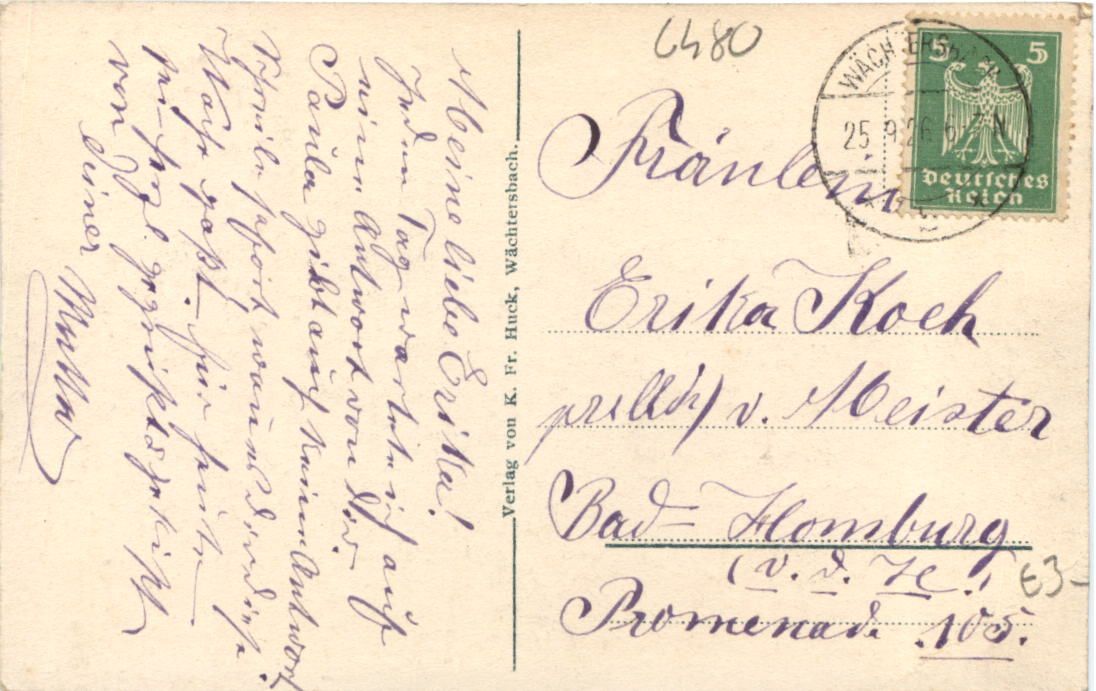 Meine liebe Erika!
Jeden Tag warte ich auf
eine Antwort von Dir.
Paula gibt auch keine Antwort
Schreibe sofort wann Du
Für heute
sei herzl. gegrüßt & geküßt
von Deiner Mutter
Verlag von K. Fr. Huck, Wächtersbach.
6480
WÄCHTERSBACH
25.9.26.6-7N
5 5
Deutsches
Reich
Fräulein
Erika Koch
v. Meister
Bad-Homburg
(v. d. H.)
Promenad. 105.
€3-